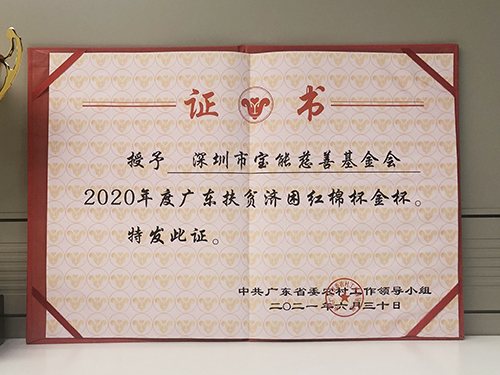 证书
授予 深圳市宝能慈善基金会
2020年度广东扶贫济困红棉杯金杯。
特发此证。
中共广东省委农村工作领导小组
二〇二一年六月三十日